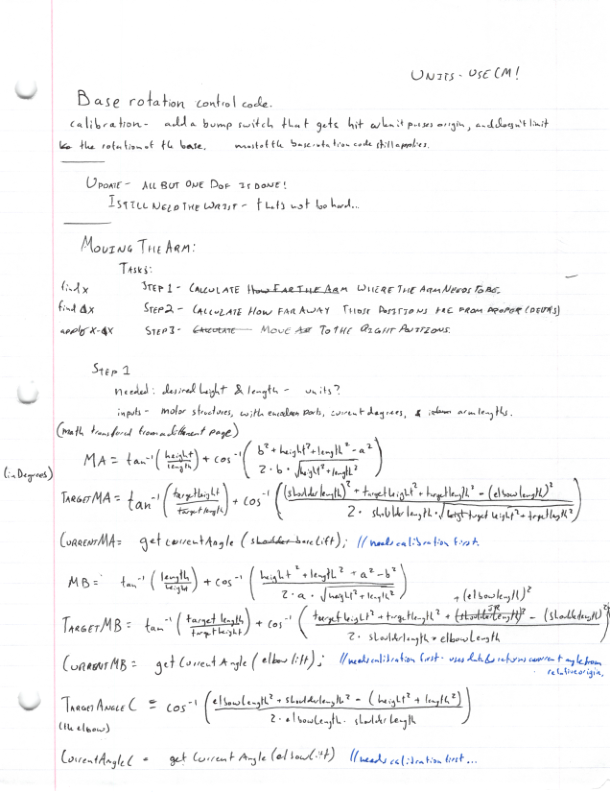 UNITS - USE CM!
Base rotation control code.
calibration - add a bump switch that gets hit when it passes origin, and doesn't limit
the rotation of the base. most of the base rotation code still applies.
UPDATE - ALL BUT ONE DOF IS DONE!
I STILL NEED THE WRIST - that's not be hard...
MOVING THE ARM:
TASKS:
find x STEP 1 - CALCULATE HOW FAR THE ARM WHERE THE ARM NEEDS TO BE.
find Δx STEP 2 - CALCULATE HOW FAR AWAY THOSE POSITIONS ARE FROM PROPER (DELTAS)
apply x-Δx STEP 3 - CALCULATE MOVE TO THE RIGHT POSITIONS.
STEP 1
needed: desired height & length - units?
inputs - motor structures, with encoder ports, current degrees, & arm lengths.
(math transferred from a different page)
(in Degrees) MA = tan⁻¹(height/length) + cos⁻¹((b² + height² + length² - a²)/(2·b·√(height² + length²)))
TARGET MA = tan⁻¹(target height/target length) + cos⁻¹(((shoulder length)² + target height² + target length² - (elbow length)²)/(2·shoulder length·√(target height² + target length²)))
CURRENT MA = get current Angle (shoulder base lift); // needs calibration first.
MB = tan⁻¹(length/height) + cos⁻¹((height² + length² + a² - b²)/(2·a·√(height² + length²)))
+ (elbow length)²
TARGET MB = tan⁻¹(target length/target height) + cos⁻¹((target height² + target length² + (shoulder length)² - (shoulder length)²)/(2·shoulder length * elbow length))
CURRENT MB = get Current Angle (elbow lift); // needs calibration first - uses data & returns current angle from
relative origin.
TARGET ANGLE C = cos⁻¹((elbow length² + shoulder length² - (height² + length²))/(2·elbow length·shoulder length))
(the elbow)
Current Angle C = get Current Angle (elbow lift) // needs calibration first...